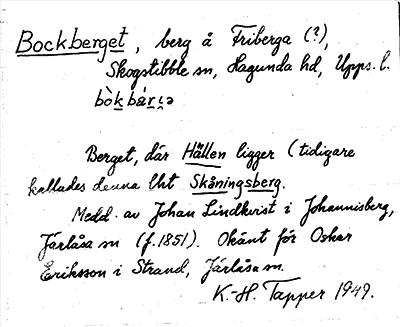 Bockberget, berg å Friberga (?),
Skogstibble sn, Hagunda hd, Upps. l.
bòkbær̨ɩ̨ə
Berget, där Hällen ligger (tidigare
kallades denna lht Skåningsberg.
Medd. av Johan Lindkvist i Johannisberg,
Järlåsa sn (f. 1851). Okänt för Oskar
Eriksson i Strand, Järlåsa sn.
K.-H. Tapper 1949.